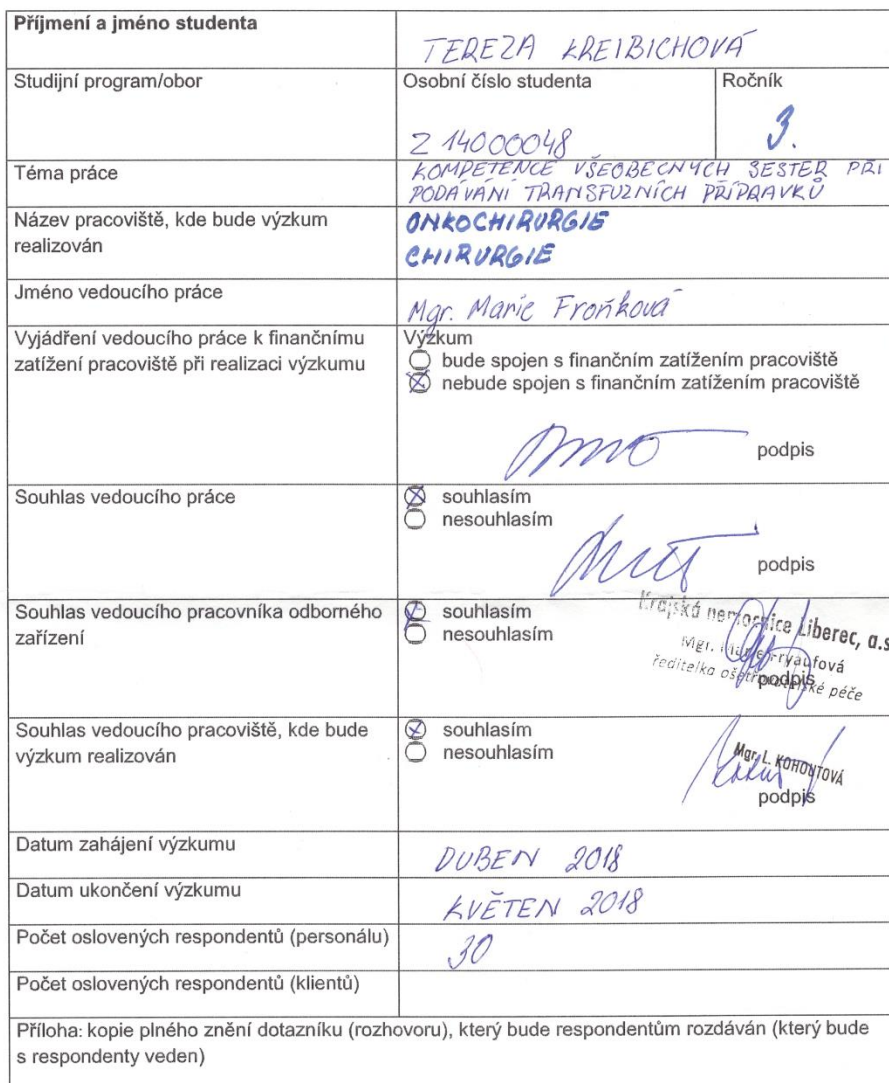 Příjmení a jméno studenta
TEREZA KREIBICHOVÁ
Studijní program/obor
Osobní číslo studenta
Ročník
Z 14000048
3.
Téma práce
KOMPETENCE VŠEOBECNÝCH SESTER PŘI
PODÁVÁNÍ TRANSFUZNÍCH PŘÍPRAVKŮ
Název pracoviště, kde bude výzkum
realizován
ONKOCHIRURGIE
CHIRURGIE
Jméno vedoucího práce
Mgr. Marie Froňková
Vyjádření vedoucího práce k finančnímu
zatížení pracoviště při realizaci výzkumu
Výzkum
bude spojen s finančním zatížením pracoviště
nebude spojen s finančním zatížením pracoviště
podpis
Souhlas vedoucího práce
souhlasím
nesouhlasím
podpis
Souhlas vedoucího pracovníka odborného
zařízení
souhlasím
nesouhlasím
Krajská nemocnice Liberec, a.s
Mgr. Marie Fryaufová
ředitelka ošetřovatelské péče
podpis
Souhlas vedoucího pracoviště, kde bude
výzkum realizován
souhlasím
nesouhlasím
Mgr. L. KOHOUTOVÁ
podpis
Datum zahájení výzkumu
DUBEN 2018
Datum ukončení výzkumu
KVĚTEN 2018
Počet oslovených respondentů (personálu)
30
Počet oslovených respondentů (klientů)
Příloha: kopie plného znění dotazníku (rozhovoru), který bude respondentům rozdáván (který bude
s respondenty veden)